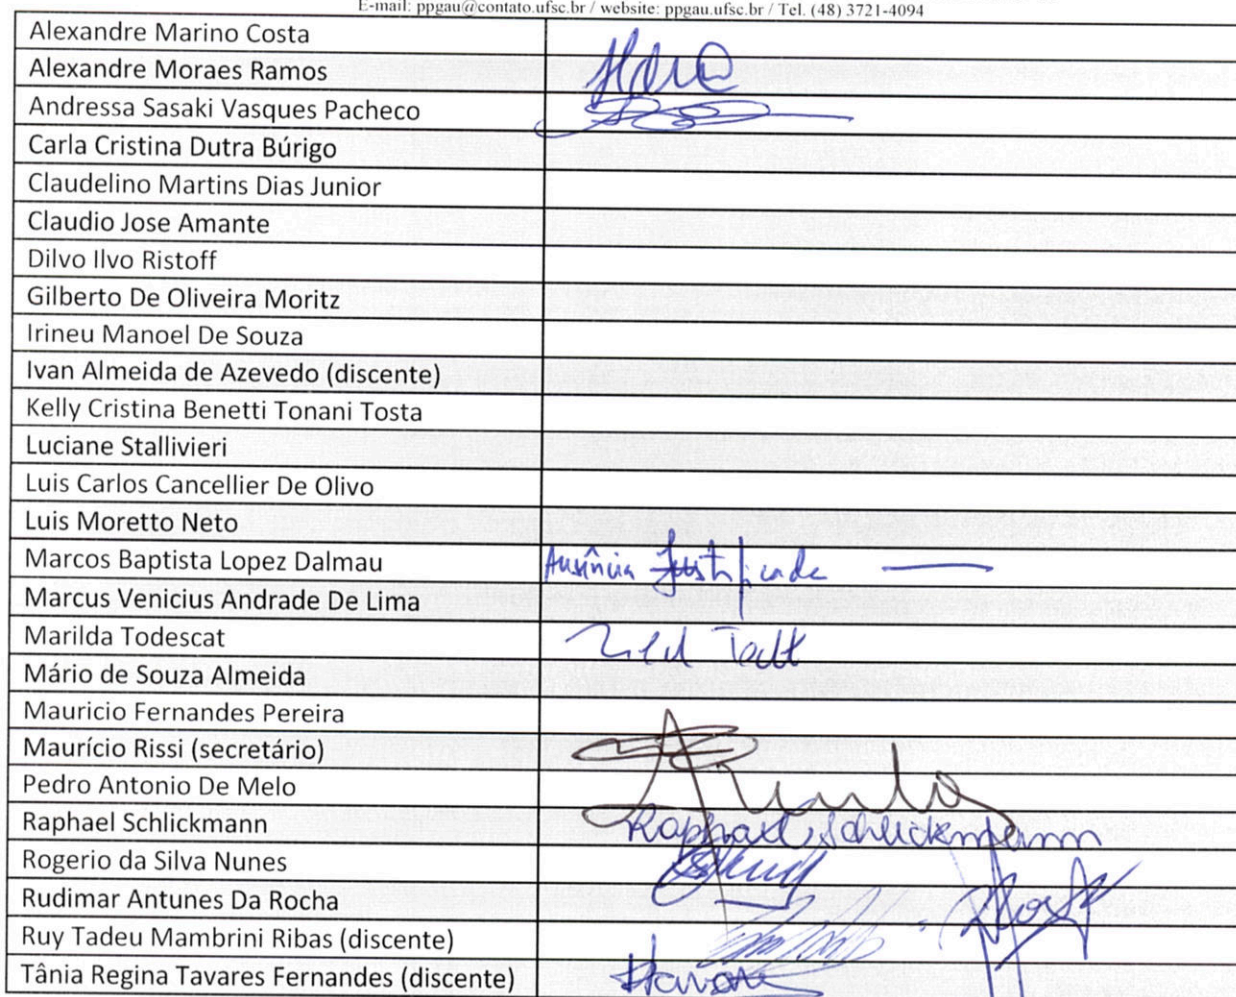 E-mail: ppgau@contato.ufsc.br / website: ppgau.ufsc.br / Tel. (48) 3721-4094
Alexandre Marino Costa
Alexandre Moraes Ramos
Andressa Sasaki Vasques Pacheco
Carla Cristina Dutra Búrigo
Claudelino Martins Dias Junior
Claudio Jose Amante
Dilvo Ilvo Ristoff
Gilberto De Oliveira Moritz
Irineu Manoel De Souza
Ivan Almeida de Azevedo (discente)
Kelly Cristina Benetti Tonani Tosta
Luciane Stallivieri
Luis Carlos Cancellier De Olivo
Luis Moretto Neto
Marcos Baptista Lopez Dalmau Ausência Justificada
Marcus Venicius Andrade De Lima
Marilda Todescat
Mário de Souza Almeida
Mauricio Fernandes Pereira
Maurício Rissi (secretário)
Pedro Antonio De Melo
Raphael Schlickmann Raphael Schlickmann
Rogerio da Silva Nunes
Rudimar Antunes Da Rocha
Ruy Tadeu Mambrini Ribas (discente)
Tânia Regina Tavares Fernandes (discente)